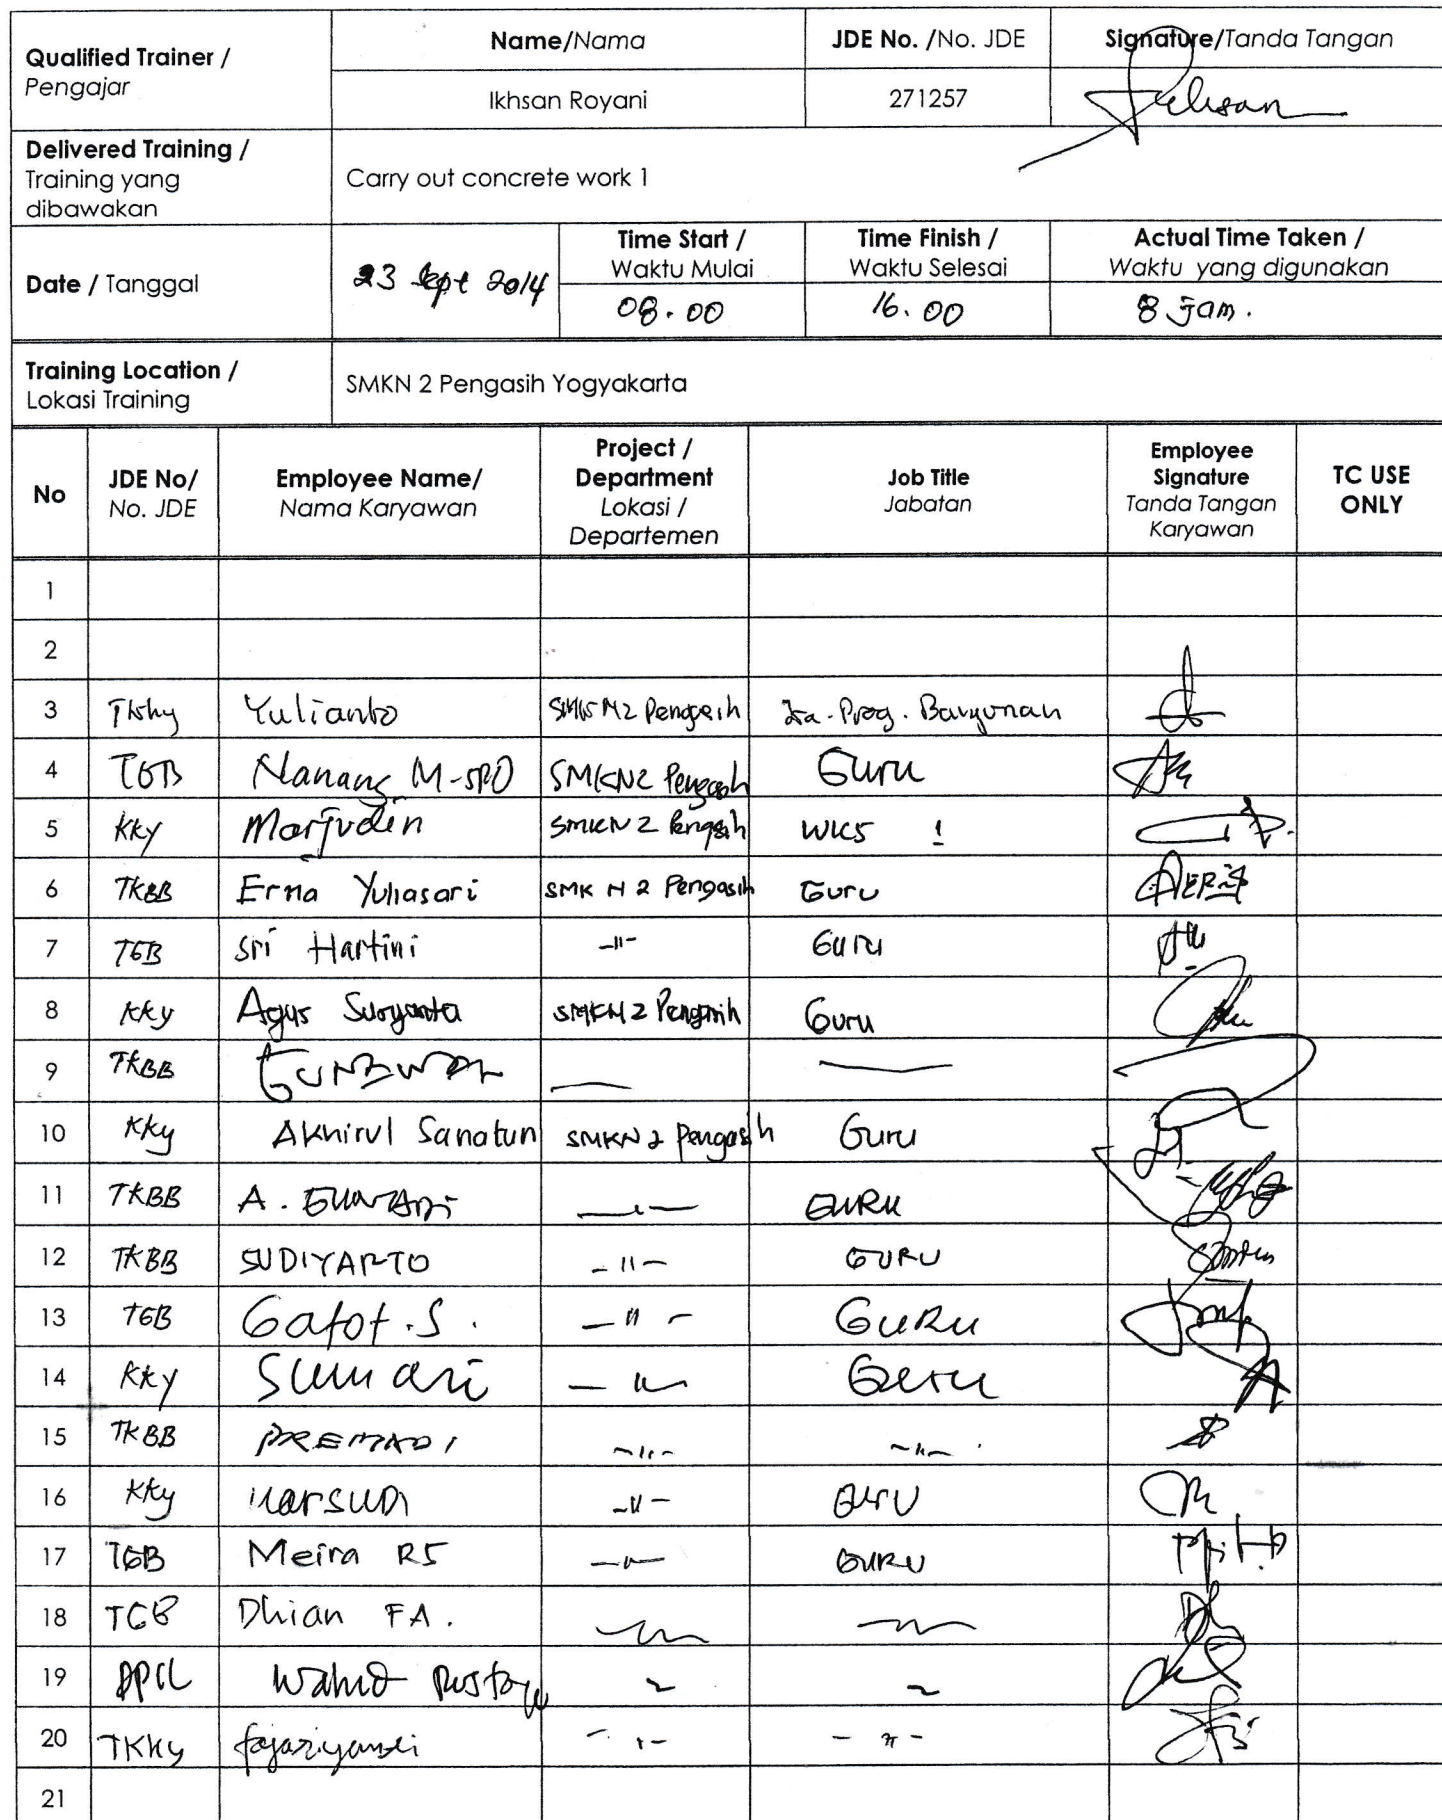 Qualified Trainer /
Pengajar
Name/Nama
JDE No. /No. JDE
Signature/Tanda Tangan
Ikhsan Royani
271257
Delivered Training /
Training yang
dibawakan
Carry out concrete work 1
Date / Tanggal
23 Sept 2014
Time Start /
Waktu Mulai
Time Finish /
Waktu Selesai
Actual Time Taken /
Waktu yang digunakan
08.00
16.00
8 Jam.
Training Location /
Lokasi Training
SMKN 2 Pengasih Yogyakarta
No
JDE No/
No. JDE
Employee Name/
Nama Karyawan
Project /
Department
Lokasi /
Departemen
Job Title
Jabatan
Employee
Signature
Tanda Tangan
Karyawan
TC USE
ONLY
1
2
3 Yulianto SMK N2 Pengasih Ka-Prog. Bangunan
4 TGB Nanang SMKN2 Pengasih Guru
5 KKy Marjudin SMKN 2 Pengasih WKS 1
6 TKBB Erna Yuliasari SMK N 2 Pengasih Guru
7 TGB Sri Hartini -"- Guru
8 KKy Agus Suryanta SMKN 2 Pengasih Guru
9 TKBB GUNAWAN
10 KKy Akhirul Sanatun SMKN 2 Pengasih Guru
11 TKBB A. GURU
12 TKBB SUDIYARTO -"- GURU
13 TGB Gatot.S. -"- GURU
14 KKy Sumari -"- Guru
15 TKBB PREMADI -"- -"-
16 KKy MARSUDI -"- GURU
17 TGB Meira RS -"- GURU
18 TGB Dhian FA.
19 Wahid
20 TKKy fajariyanti -"- -"-
21